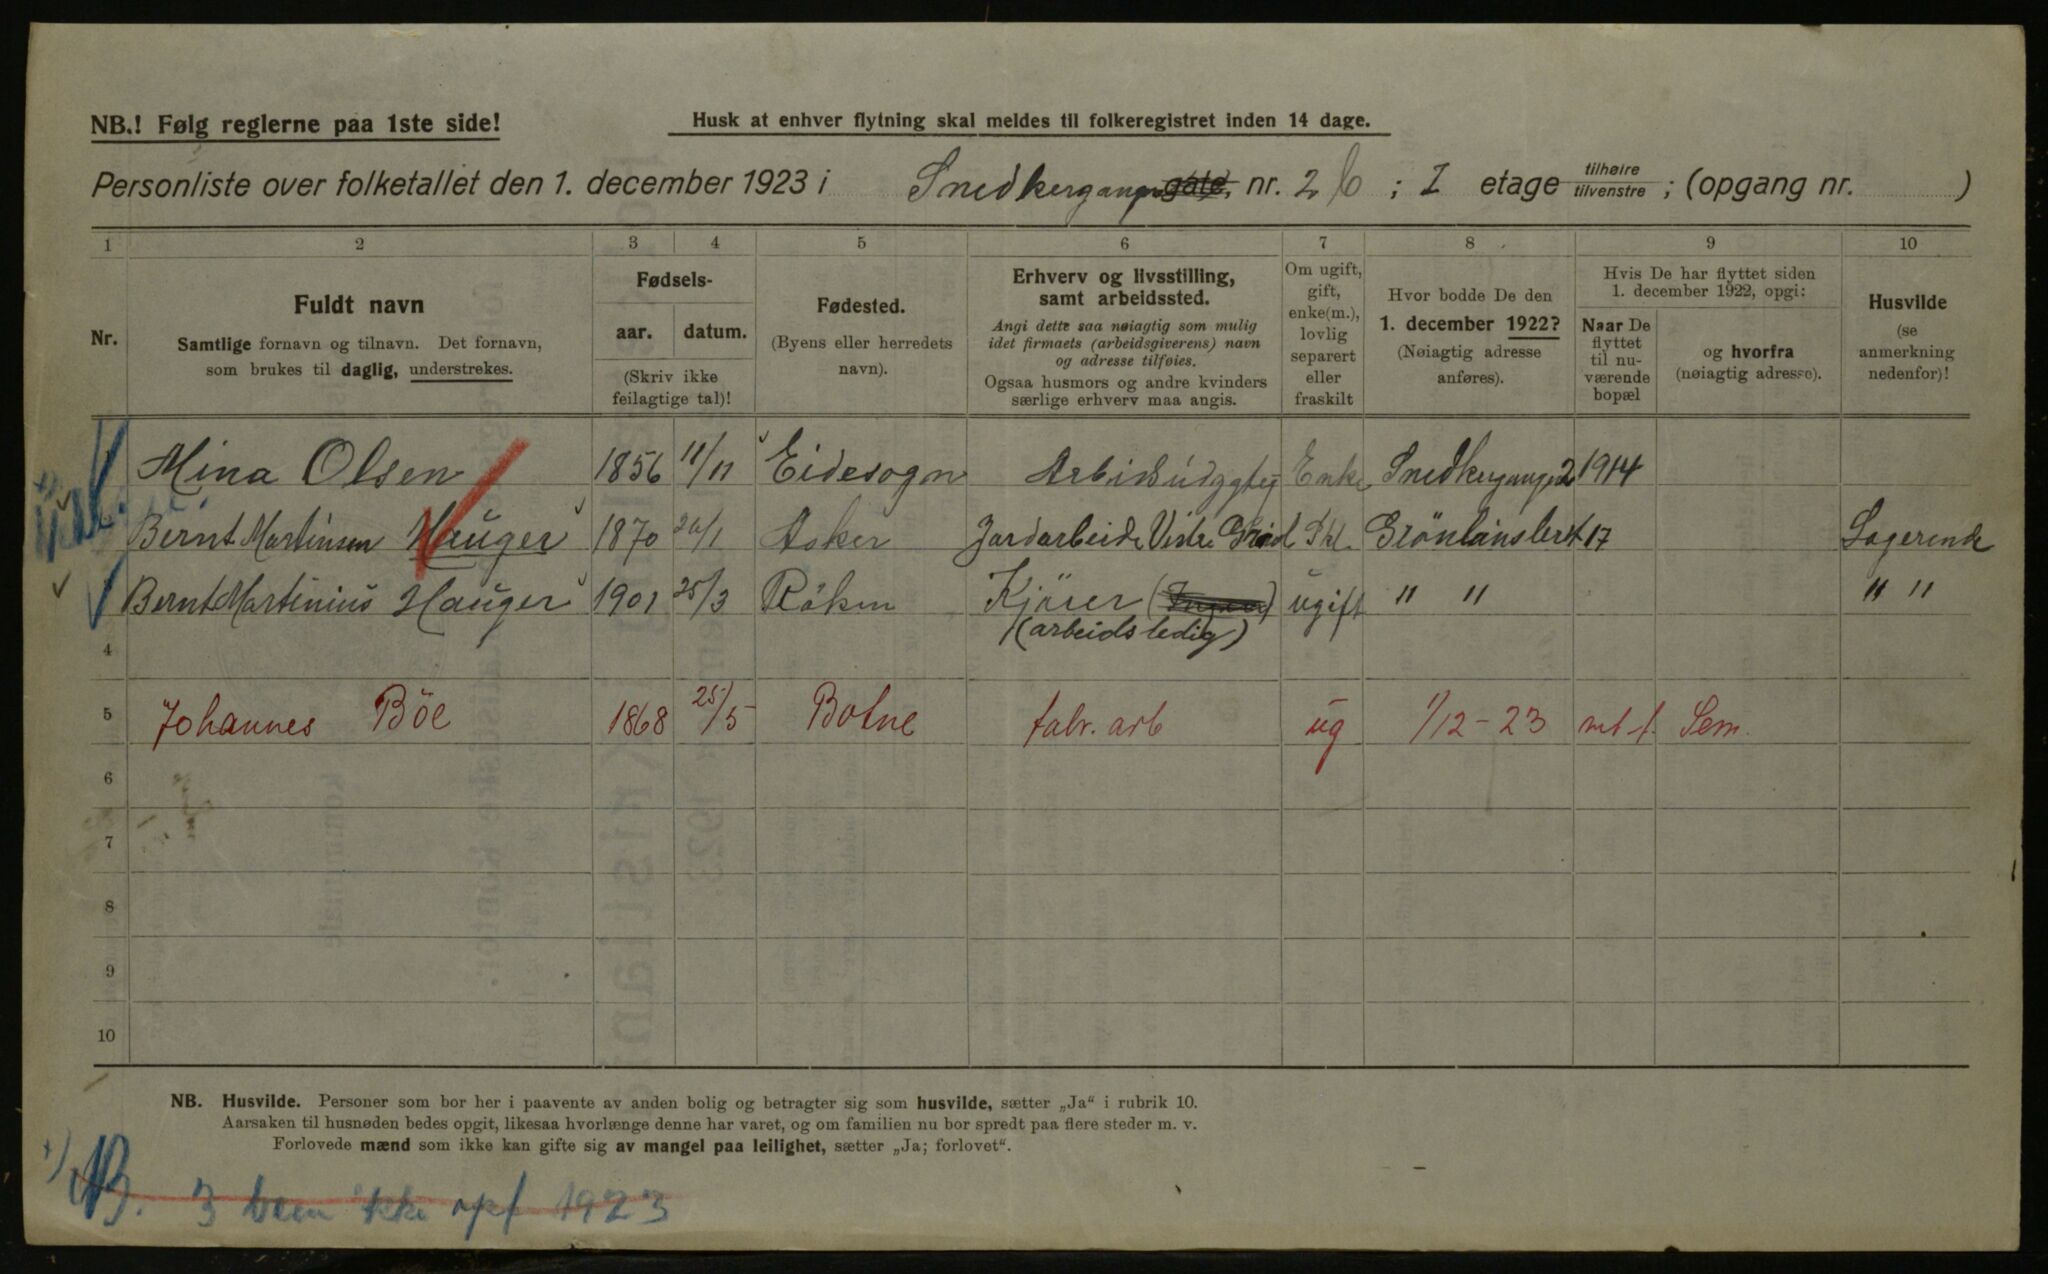 NB.! Følg reglerne paa 1ste side!
Husk at enhver flytning skal meldes til folkeregistret inden 14 dage.
Personliste over folketallet den 1. december 1923 i Snedkergangen gate, nr. 2 b ; I etage tilhøire tilvenstre ; (opgang nr. )
1 2 3 4 5 6 7 8 9 10
Nr.
Fuldt navn
Samtlige fornavn og tilnavn. Det fornavn,
som brukes til daglig, understrekes.
Fødsels-
aar. datum.
(Skriv ikke
feilagtige tal)!
Fødested.
(Byens eller herredets
navn).
Erhverv og livsstilling,
samt arbeidssted.
Angi dette saa nøiagtig som mulig
idet firmaets (arbeidsgiverens) navn
og adresse tilføies.
Ogsaa husmors og andre kvinders
særlige erhverv maa angis.
Om ugift,
gift,
enke(m.),
lovlig
separert
eller
fraskilt
Hvor bodde De den
1. december 1922?
(Nøiagtig adresse
anføres).
Hvis De har flyttet siden
1. december 1922, opgi:
Naar De
flyttet
til nu-
værende
bopæl
og hvorfra
(nøiagtig adresse).
Husvilde
(se
anmerkning
nedenfor)!
Mina Olsen 1856 11/11 Eidesogn Enke Snedkergangen 2 1914
Bernt Martinsen Hauger 1870 20/1 Asker Jordarbeide Grönlandsleret 17 Logerende
Bernt Martinius Hauger 1901 25/3 Röken Kjörer ugift " " " "
(arbeidsledig)
4
5 Johannes Böe 1868 25/5 Botne fabr. arb ug 1/12-23 Sem.
6
7
8
9
10
NB. Husvilde. Personer som bor her i paavente av anden bolig og betragter sig som husvilde, sætter „Ja“ i rubrik 10.
Aarsaken til husnøden bedes opgit, likesaa hvorlænge denne har varet, og om familien nu bor spredt paa flere steder m. v.
Forlovede mænd som ikke kan gifte sig av mangel paa leilighet, sætter „Ja; forlovet“.
NB. 3 ikke opf 1923